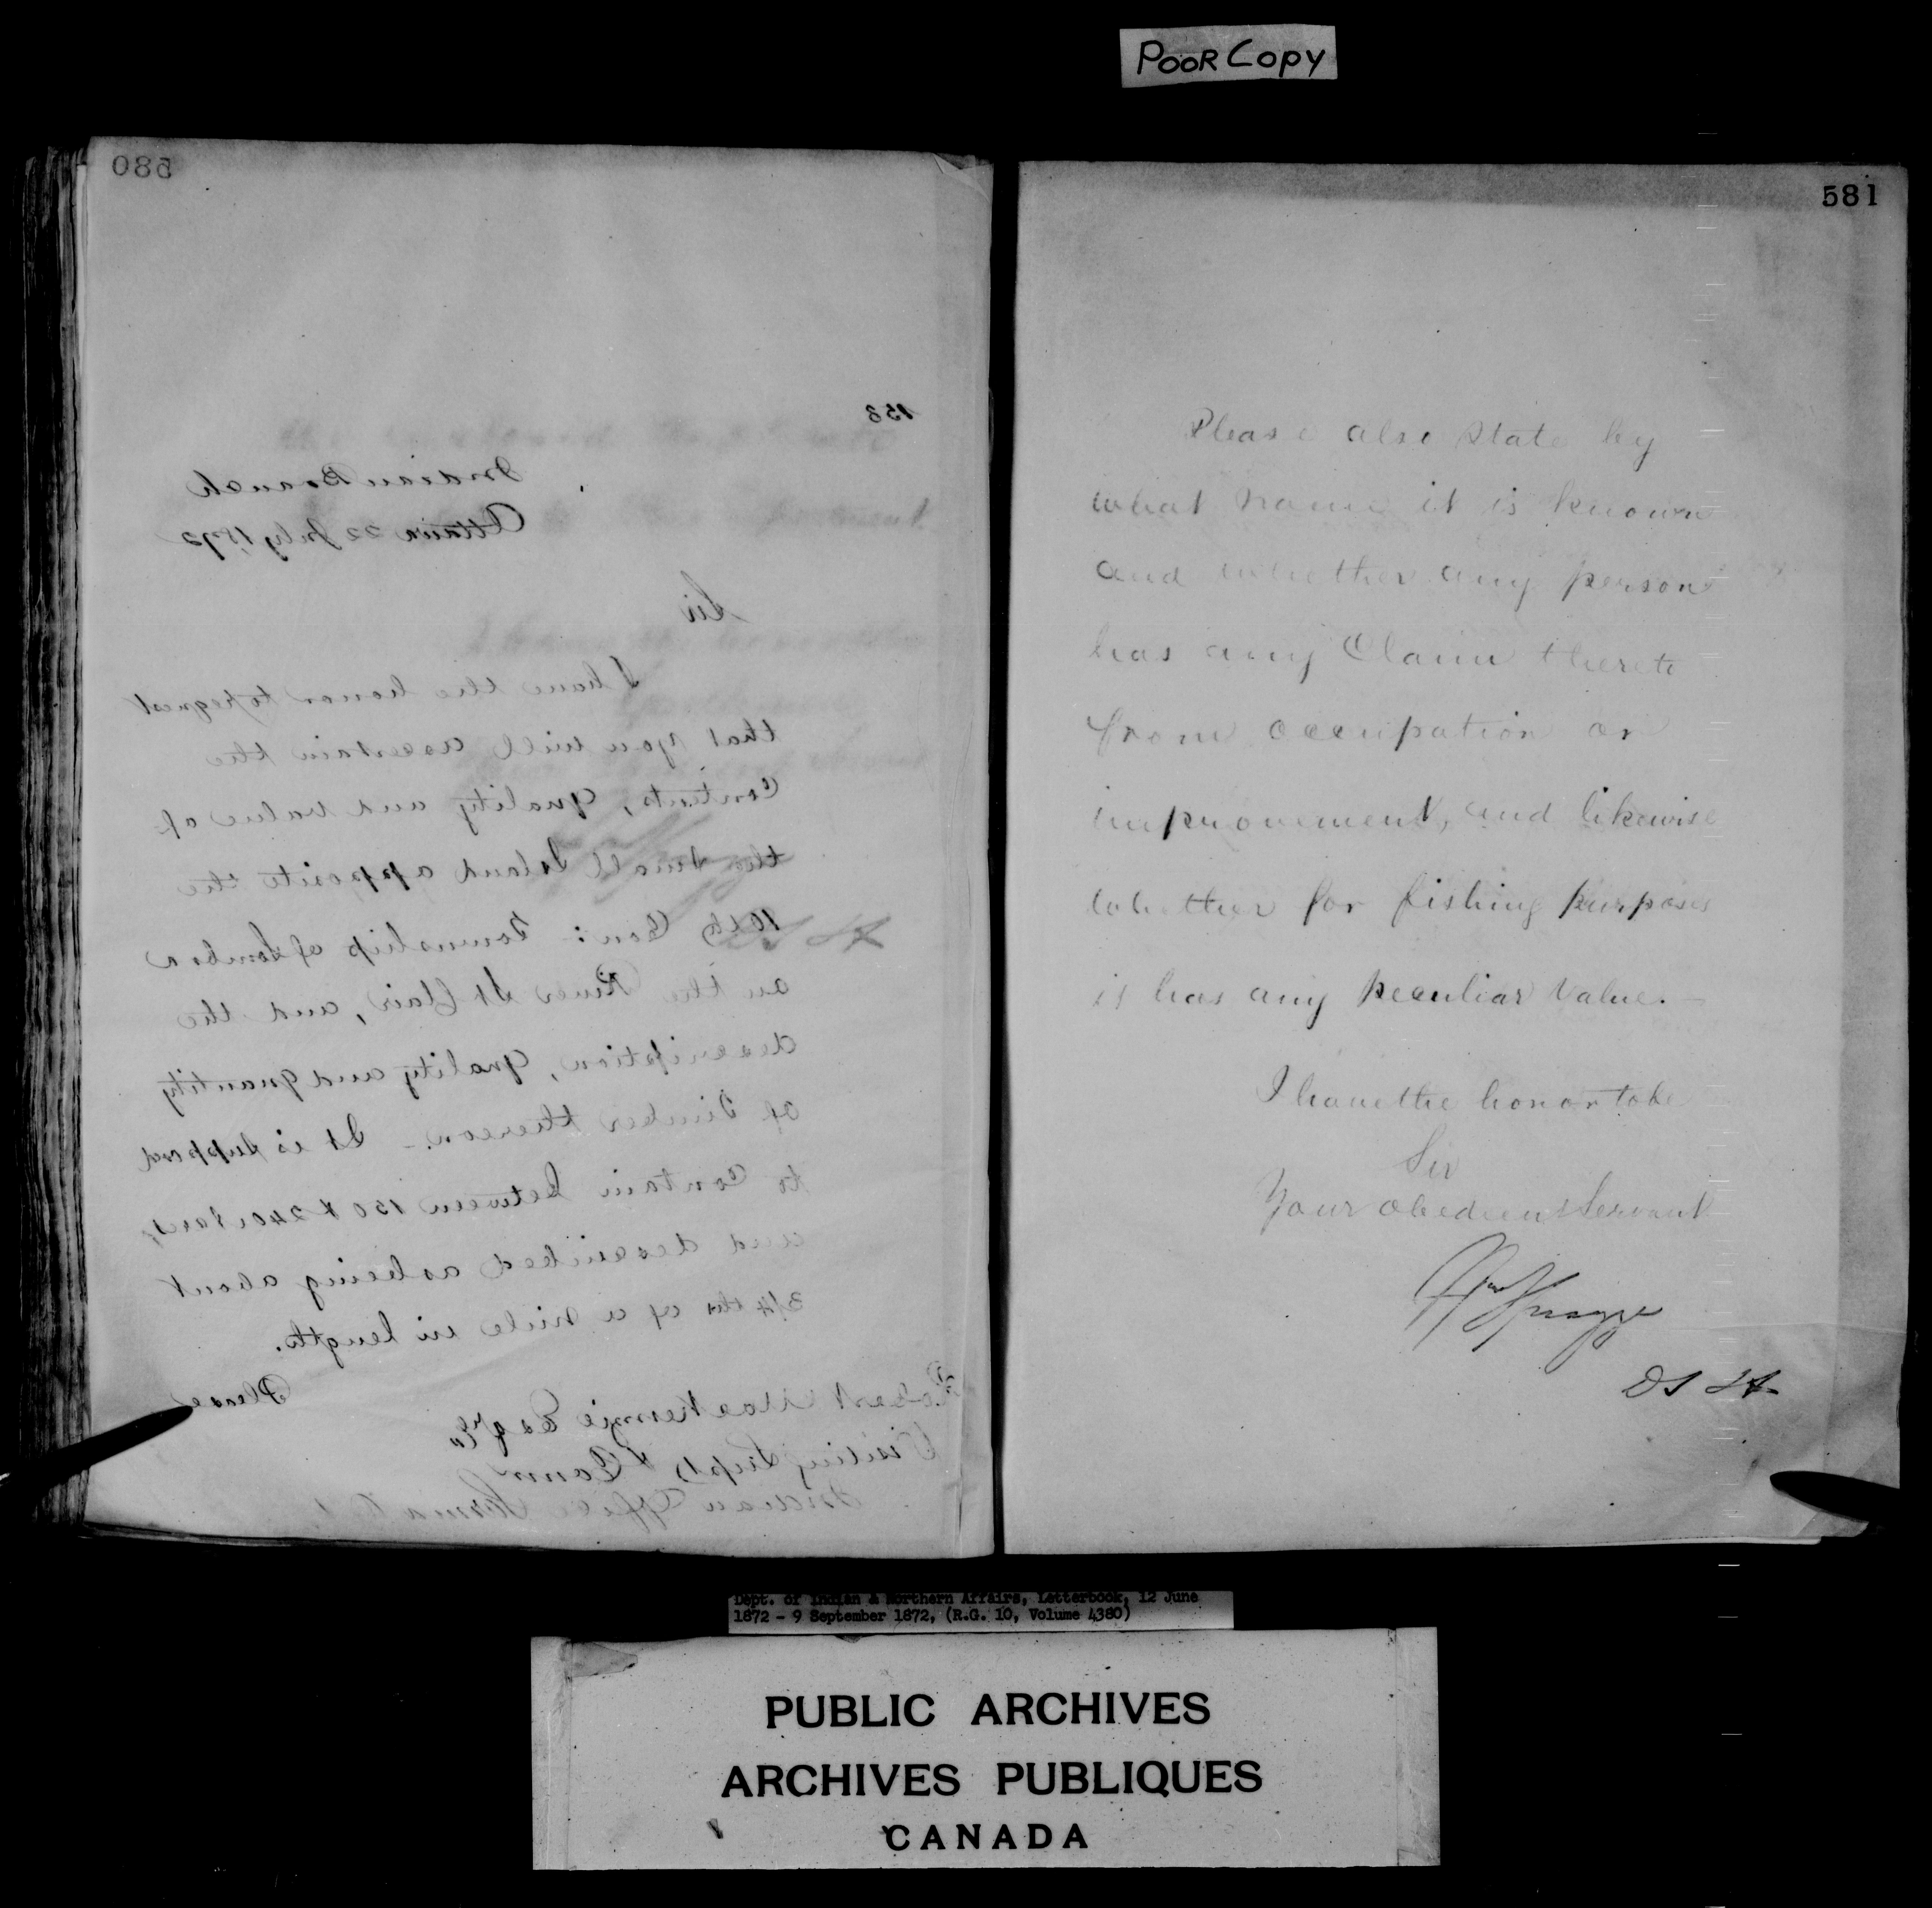 POOR COPY
580
153
Indian Branch
Ottawa 22 July 1872
Sir
I have the honor to request
that you will ascertain the
Contents, quality and value of
the small Island opposite the
10th Con: Township of Sombra
on the River St Clair, and the
description, quality and quantity
of Timber thereon. - It is supposed
to contain between 150 & 240 acres,
and described as being about
3/4ths of a mile in length.
Please
Robert MacKenzie Esqre
Visiting Supt & Comr
Indian Office Sarnia
581
Please also state by
what name it is known
and whether any person
has any Claim thereto
from occupation or
improvement, and likewise
whether for fishing purposes
it has any peculiar value. -
I have the honor to be
Sir
Your obedient Servant
Wm Spragge
DS IA
Dept. of Indian & Northern Affairs, Letterbook, 12 June
1872 - 9 September 1872, (R.G. 10, Volume 4380)
PUBLIC ARCHIVES
ARCHIVES PUBLIQUES
CANADA